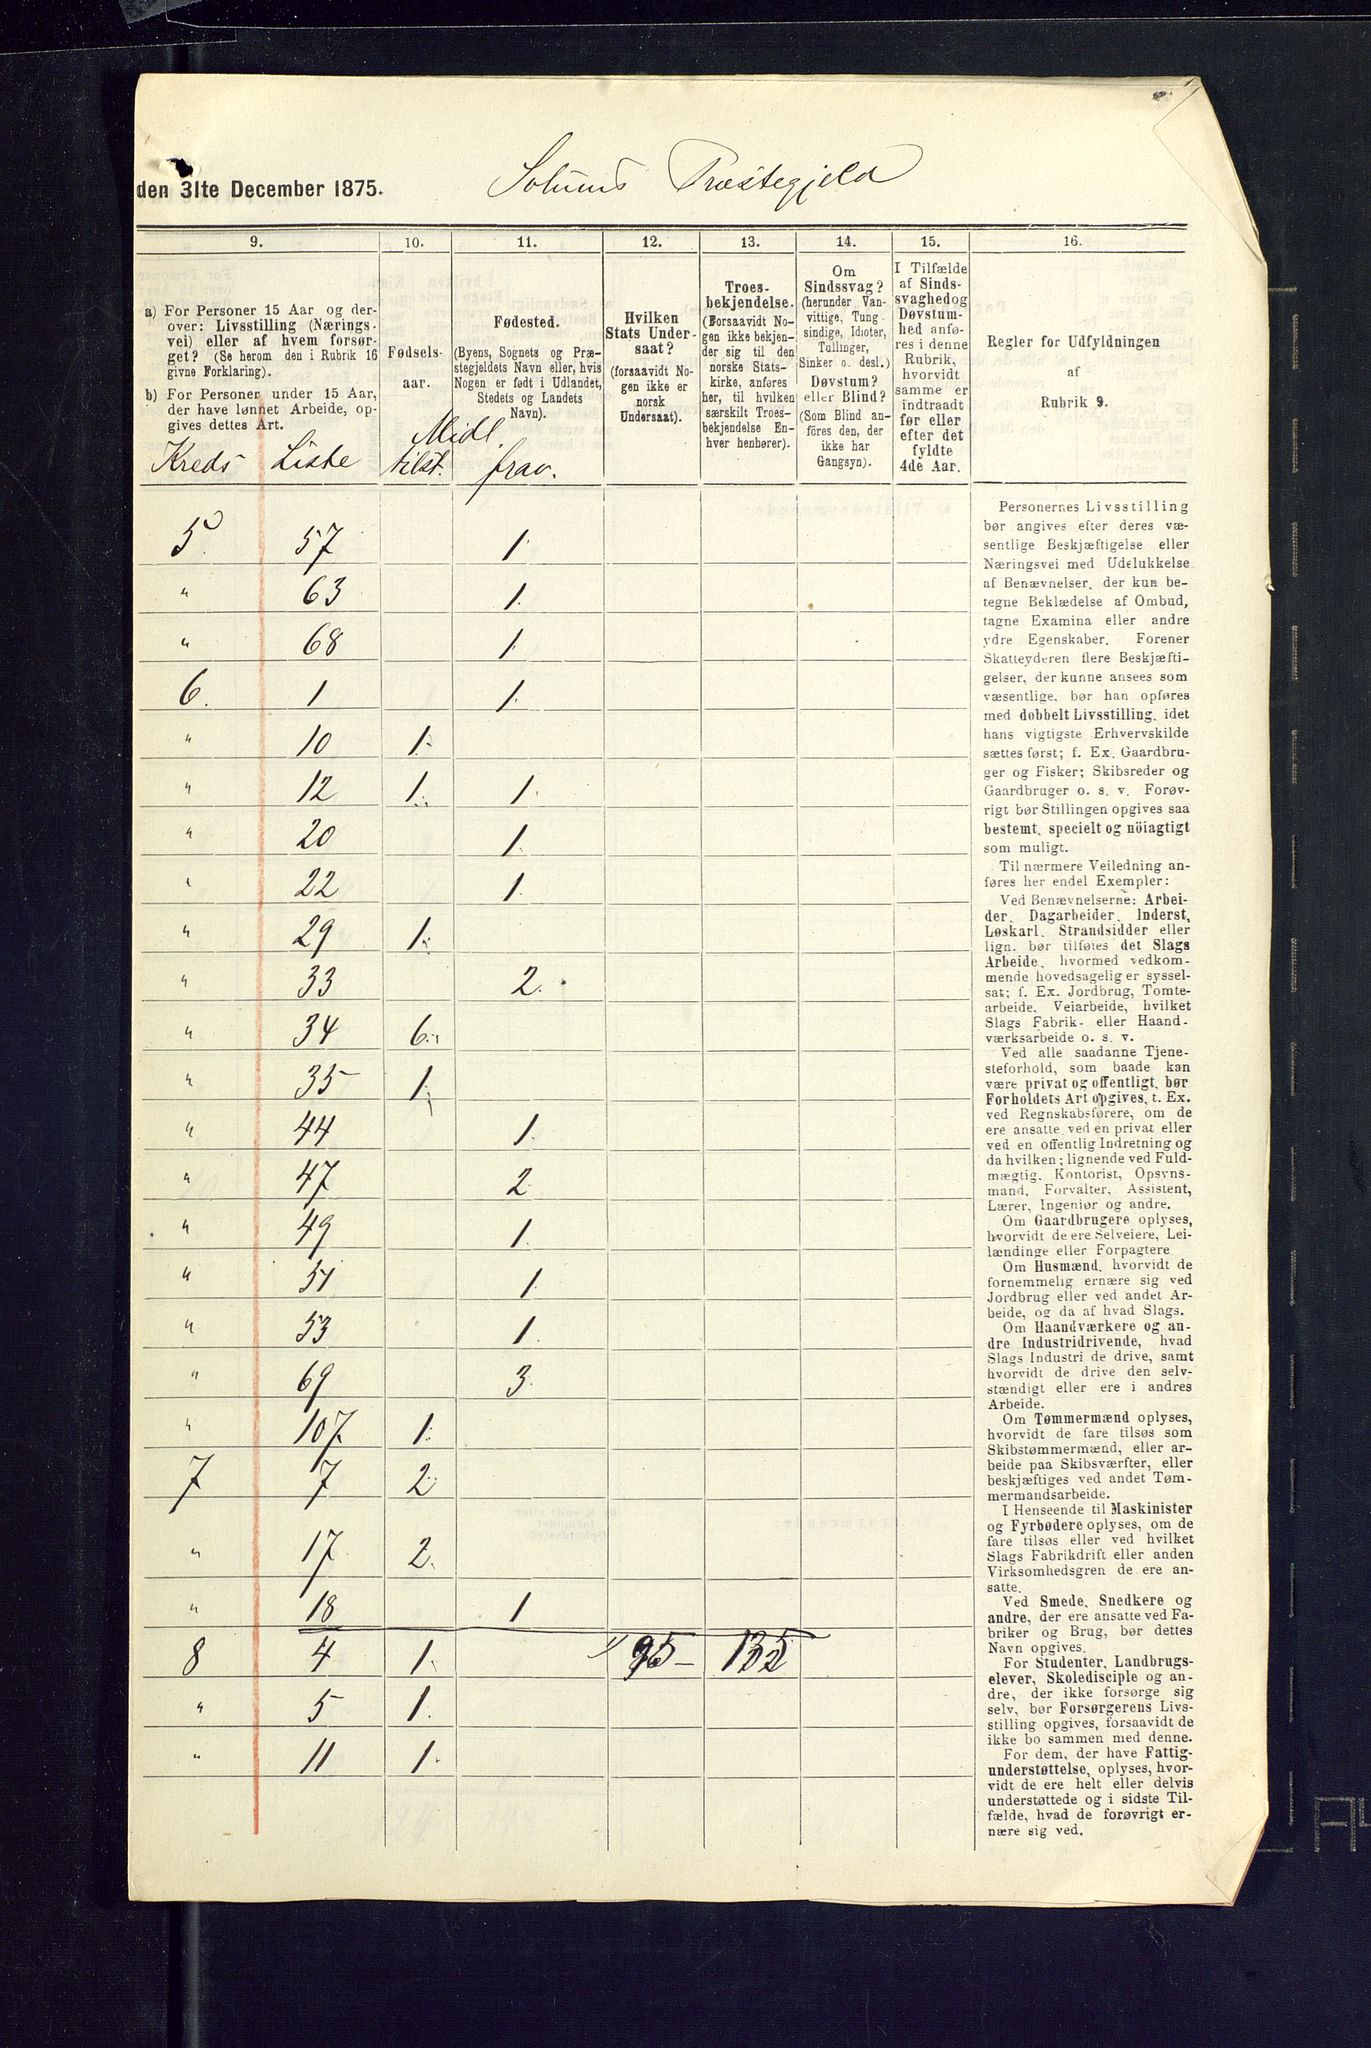 den 31te December 1875. Solums Præstegjeld
9. 10. 11. 12. 13. 14. 15. 16.
a) For Personer 15 Aar og der-
over: Livsstilling (Nærings-
vei) eller af hvem forsør-
get? (Se herom den i Rubrik 16
givne Forklaring).
b) For Personer under 15 Aar,
der have lønnet Arbeide, op-
gives dettes Art.
Fødsels-
aar.
Fødested.
(Byens, Sognets og Præ-
stegjeldets Navn eller, hvis
Nogen er født i Udlandet,
Stedets og Landets
Navn).
Hvilken
Stats Under-
saat?
(forsaavidt No-
gen ikke er
norsk
Undersaat).
Troes-
bekjendelse.
(Forsaavidt No-
gen ikke bekjen-
der sig til den
norske Stats-
kirke, anføres
her, til hvilken
særskilt Troes-
bekjendelse En-
hver henhører).
Om
Sindssvag?
(herunder Van-
vittige, Tung-
sindige, Idioter,
Tullinger,
Sinker o. desl.)
Døvstum?
eller Blind?
(Som Blind an-
føres den, der
ikke har
Gangsyn).
I Tilfælde
af Sinds-
svaghed og
Døvstum-
hed anfø-
res i denne
Rubrik,
hvorvidt
samme er
indtraadt
før eller
efter det
fyldte
4de Aar.
Regler for Udfyldningen
af
Rubrik 9.
Kreds Liste Midl. tilst. frav.
5. 57 1.
" 63 1.
" 68 1.
6. 1 1.
" 10 1.
" 12 1. 1.
" 20 1.
" 22 1.
" 29 1.
" 33 2.
" 34 6.
" 35 1.
" 44 1.
" 47 2.
" 49 1.
" 51 1.
" 53 1.
" 69 3.
" 107 1.
7 7 2.
" 17 2.
" 18 1
8 4 1. 95 135
" 5 1.
" 11 1.
Personernes Livsstilling
bør angives efter deres væ-
sentlige Beskjæftigelse eller
Næringsvei med Udelukkelse
af Benævnelser, der kun be-
tegne Beklædelse af Ombud,
tagne Examina eller andre
ydre Egenskaber. Forener
Skatteyderen flere Beskjæfti-
gelser, der kunne ansees som
væsentlige, bør han opføres
med dobbelt Livsstilling, idet
hans vigtigste Erhvervskilde
sættes først; f. Ex. Gaardbru-
ger og Fisker; Skibsreder og
Gaardbruger o. s. v. Forøv-
rigt bør Stillingen opgives saa
bestemt, specielt og nöiagtigt
som muligt.
Til nærmere Veiledning an-
føres her endel Exempler:
Ved Benævnelserne: Arbei-
der, Dagarbeider, Inderst,
Løskarl, Strandsidder eller
lign. bør tilføies det Slags
Arbeide, hvormed vedkom-
mende hovedsagelig er syssel-
sat; f. Ex. Jordbrug, Tomte-
arbeide, Veiarbeide, hvilket
Slags Fabrik- eller Haand-
værksarbeide o. s. v.
Ved alle saadanne Tjene-
steforhold, som baade kan
være privat og offentligt, bør
Forholdets Art opgives, t. Ex.
ved Regnskabsførere, om de
ere ansatte ved en privat eller
ved en offentlig Indretning og
da hvilken; lignende ved Fuld-
mægtig, Kontorist, Opsyns-
mand, Forvalter, Assistent,
Lærer, Ingeniør og andre.
Om Gaardbrugere oplyses,
hvorvidt de ere Selveiere, Lei-
lændinge eller Forpagtere
Om Husmænd, hvorvidt de
fornemmelig ernære sig ved
Jordbrug eller ved andet Ar-
beide, og da af hvad Slags.
Om Haandværkere og an-
dre Industridrivende, hvad
Slags Industri de drive, samt
hvorvidt de drive den selv-
stændigt eller ere i andres
Arbeide.
Om Tømmermænd oplyses,
hvorvidt de fare tilsøs som
Skibstømmermænd, eller ar-
beide paa Skibsværfter, eller
beskjæftiges ved andet Tøm-
mermandsarbeide.
I Henseende til Maskinister
og Fyrbødere oplyses, om de
fare tilsøs eller ved hvilket
Slags Fabrikdrift eller anden
Virksomhedsgren de ere an-
satte.
Ved Smede, Snedkere og
andre, der ere ansatte ved Fa-
briker og Brug, bør dettes
Navn opgives.
For Studenter, Landbrugs-
elever, Skoledisciple og an-
dre, der ikke forsørge sig
selv, bør Forsørgerens Livs-
stilling opgives, forsaavidt de
ikke bo sammen med denne.
For dem, der have Fattig-
understøttelse, oplyses, hvor-
vidt de ere helt eller delvis
understøttede og i sidste Til-
fælde, hvad de forøvrigt er-
nære sig ved.